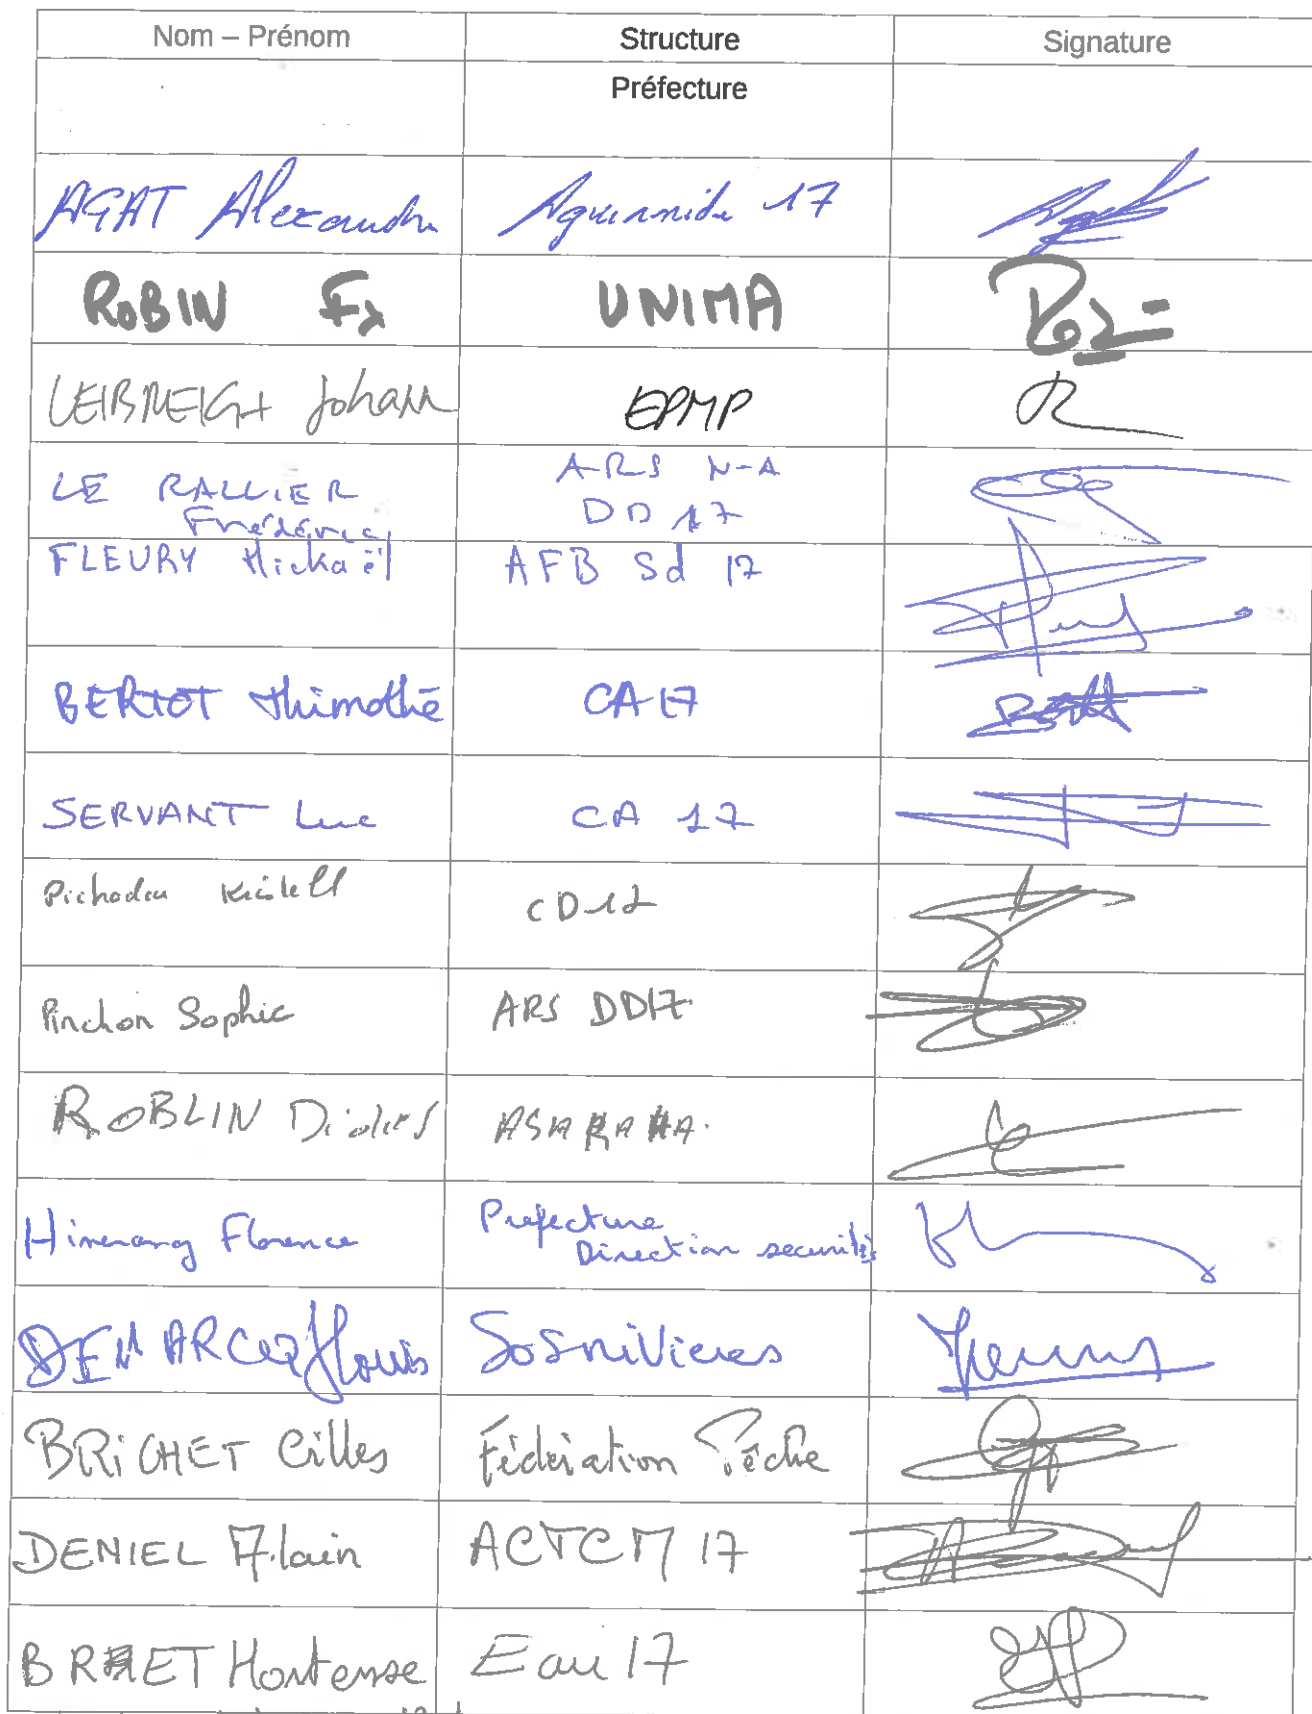 Nom – Prénom Structure Signature
Préfecture
AGAT Alexandre Aquanide 17
ROBIN Fx UNIMA
LEIBREICH Johann EPMP
LE RALLIER ARS N-A
Frédéric DD 17
FLEURY Mickaël AFB Sd 17
BERTOT Thimothé CA 17
SERVANT Luc CA 17
Kristell CD 17
Pinchon Sophie ARS DD17
ROBLIN ASA
Florence Préfecture
Direction sécurités
DEMARCQ JLouis SOSrivières
BRICHET Gilles Fédération Pêche
DENIEL Alain ACTCM 17
Hortense Eau 17